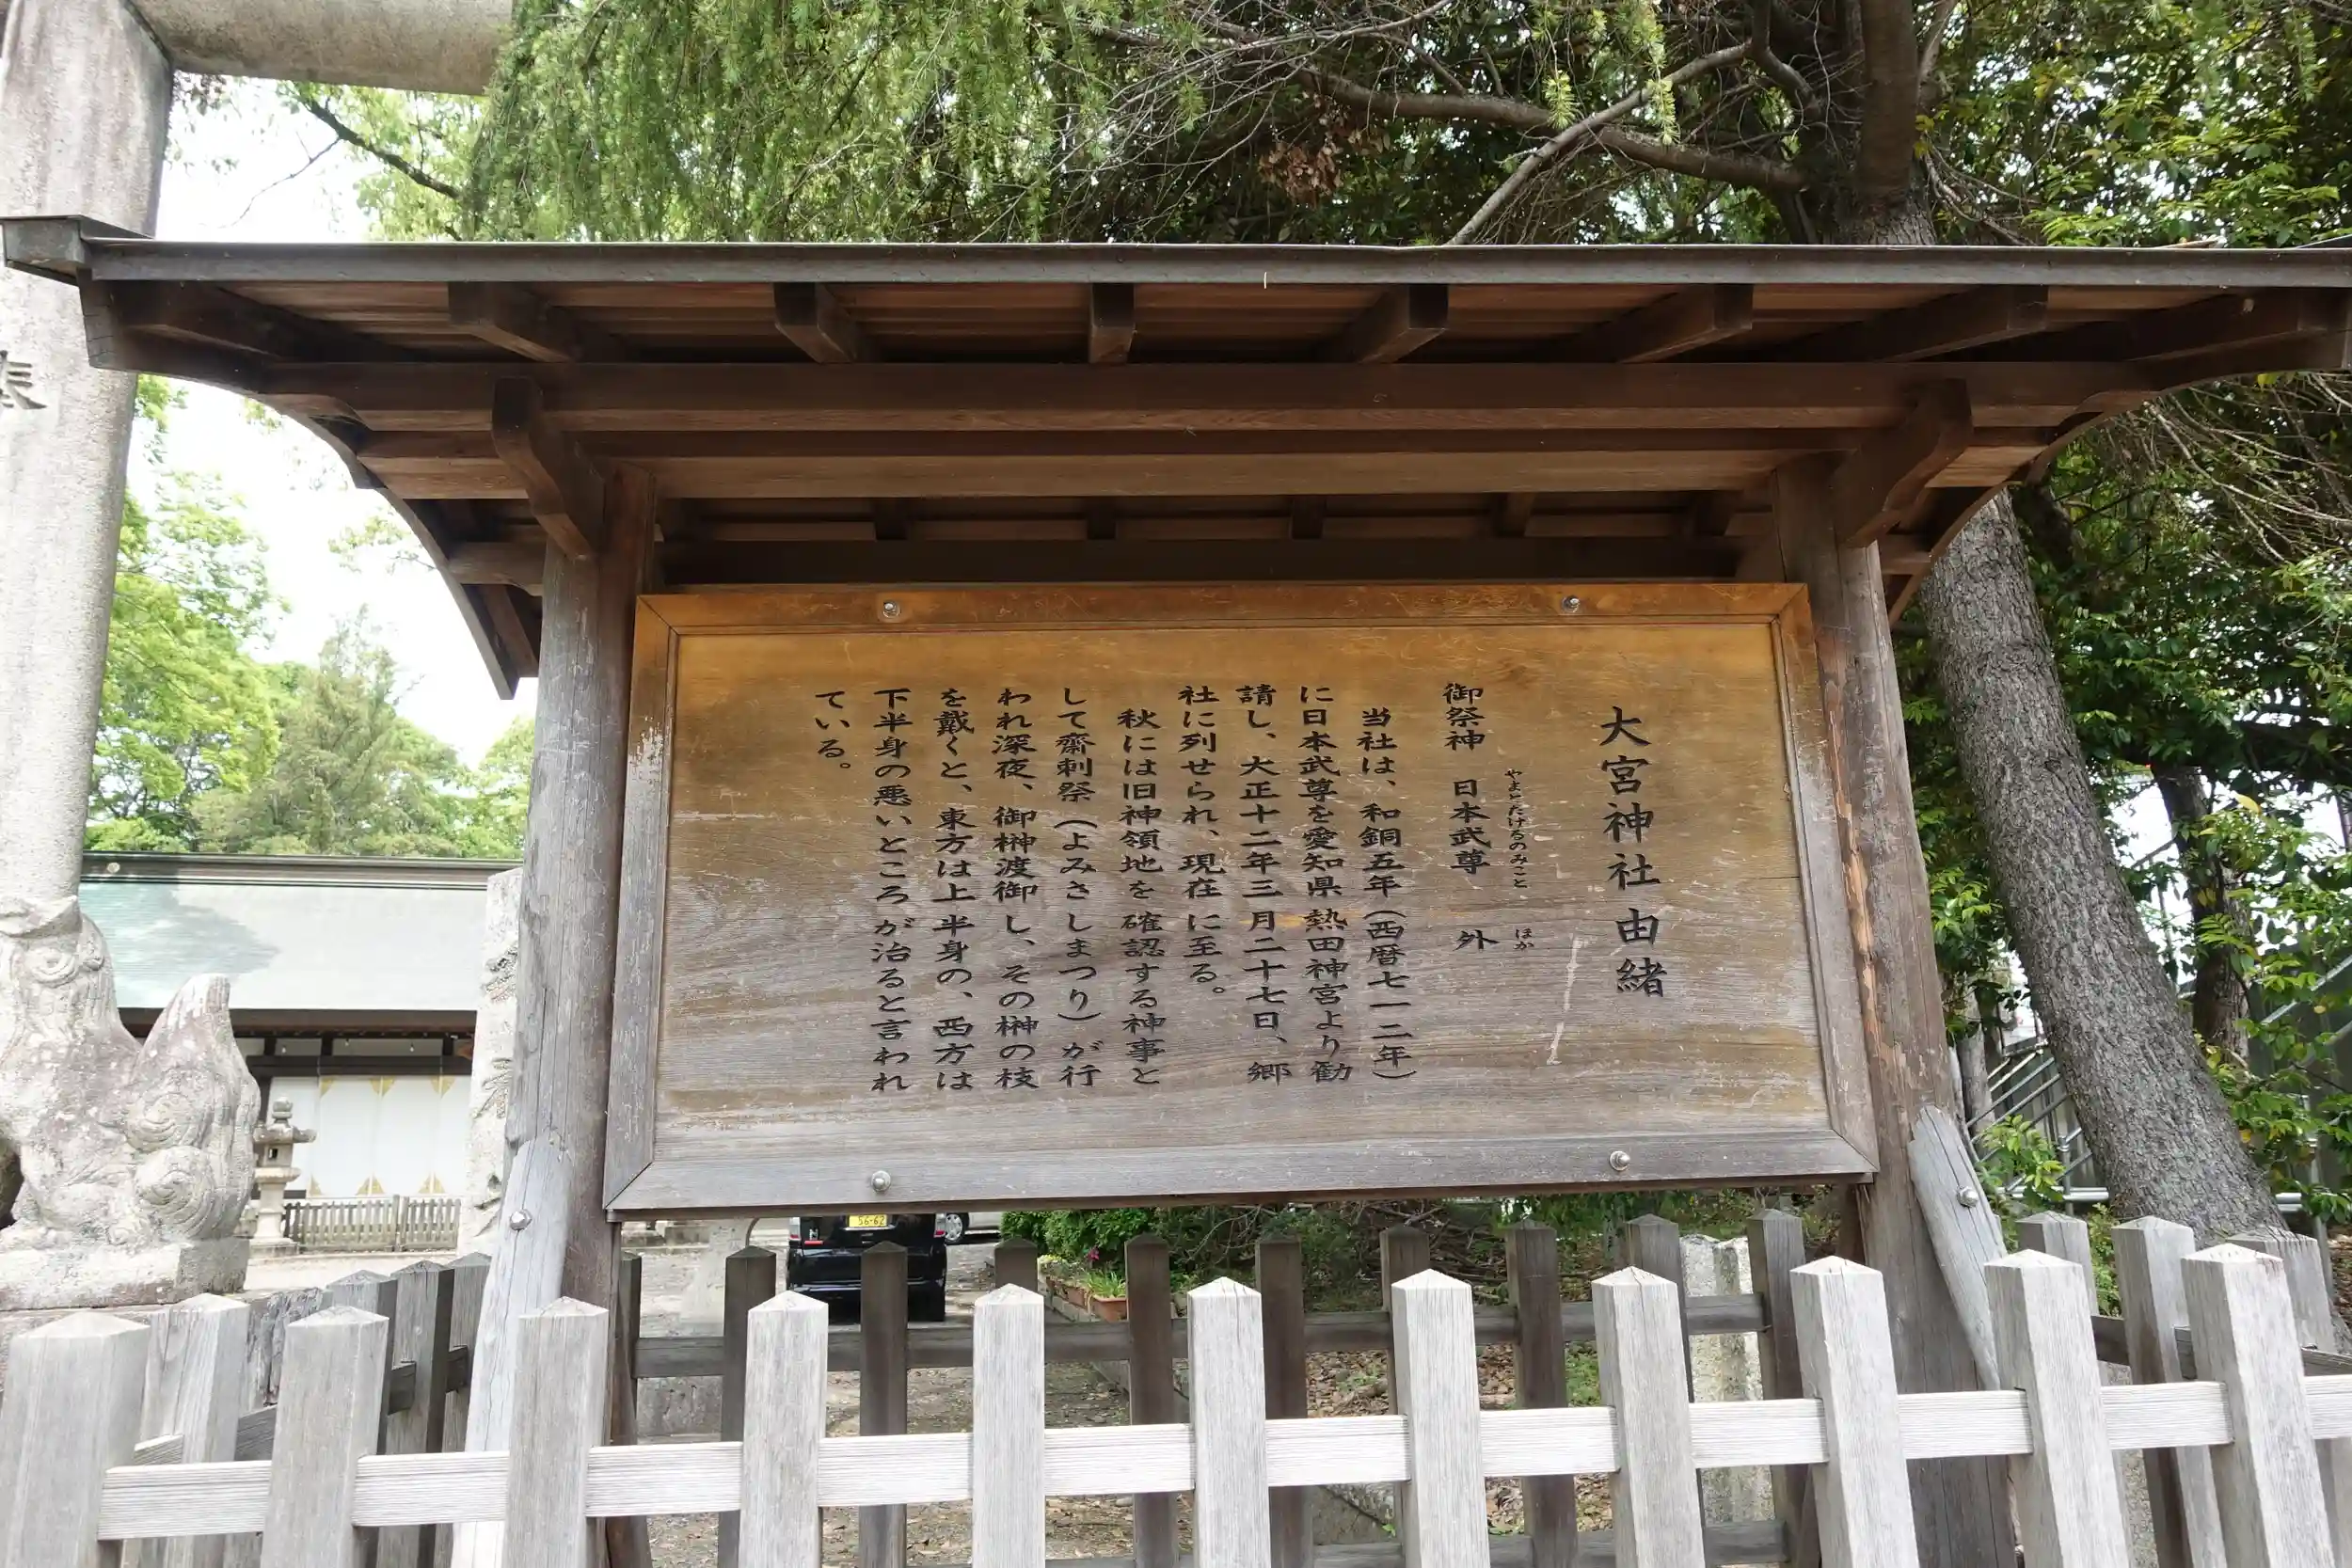 大宮神社由緒
御祭神　日本武尊　外
やまとたけるのみこと
ほか
当社は、和銅五年(西暦七一二年)
に日本武尊を愛知県熱田神宮より勧
請し、大正十二年三月二十七日、郷
社に列せられ、現在に至る。
秋には旧神領地を確認する神事と
して齋刺祭(よみさしまつり)が行
われ深夜、御榊渡御し、その榊の枝
を戴くと、東方は上半身の、西方は
下半身の悪いところが治ると言われ
ている。
56-62